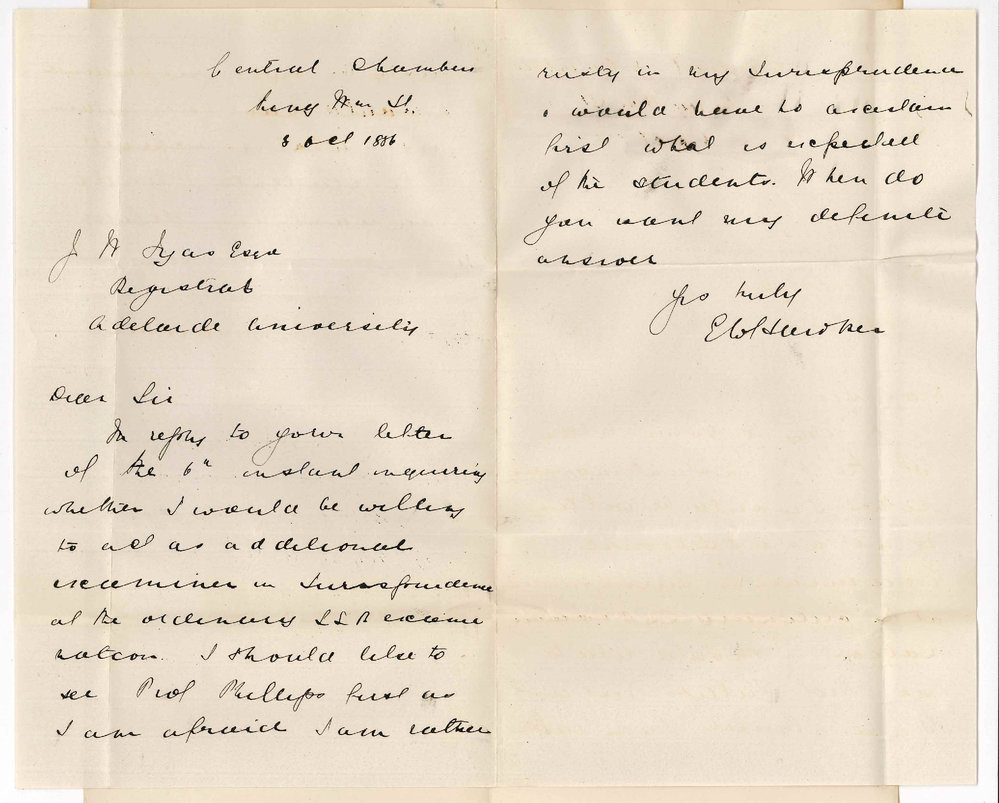 Central Chambers
King Wm St.
8 Oct 1886.
J W Tyas Esqre
Registrar
Adelaide University
Dear Sir
In reply to your letter
of the 6th instant inquiring
whether I would be willing
to act as additional
examiner in Jurisprudence
at the ordinary LLB exami
nation. I should like to
see Prof Phillips first as
I am afraid I am rather
rusty in my Jurisprudence
& would have to ascertain
first what is expected
of the students. When do
you want my definite
answer
Yrs truly
E W Hawker